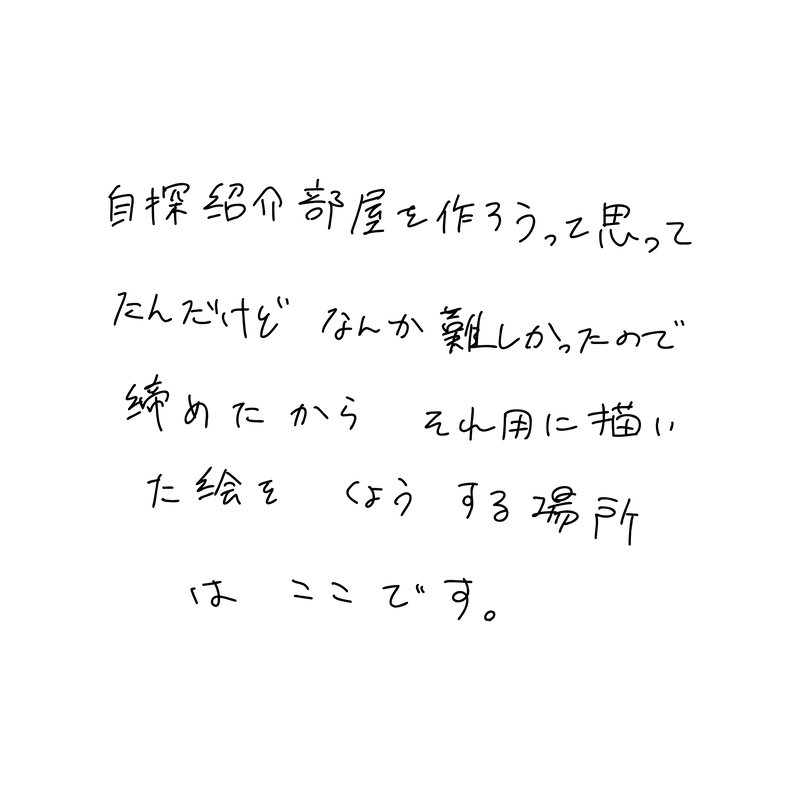 自探紹介部屋を作ろうって思って
たんだけど なんか難しかったので
締めたから それ用に描い
た絵を くようする場所
は ここです。